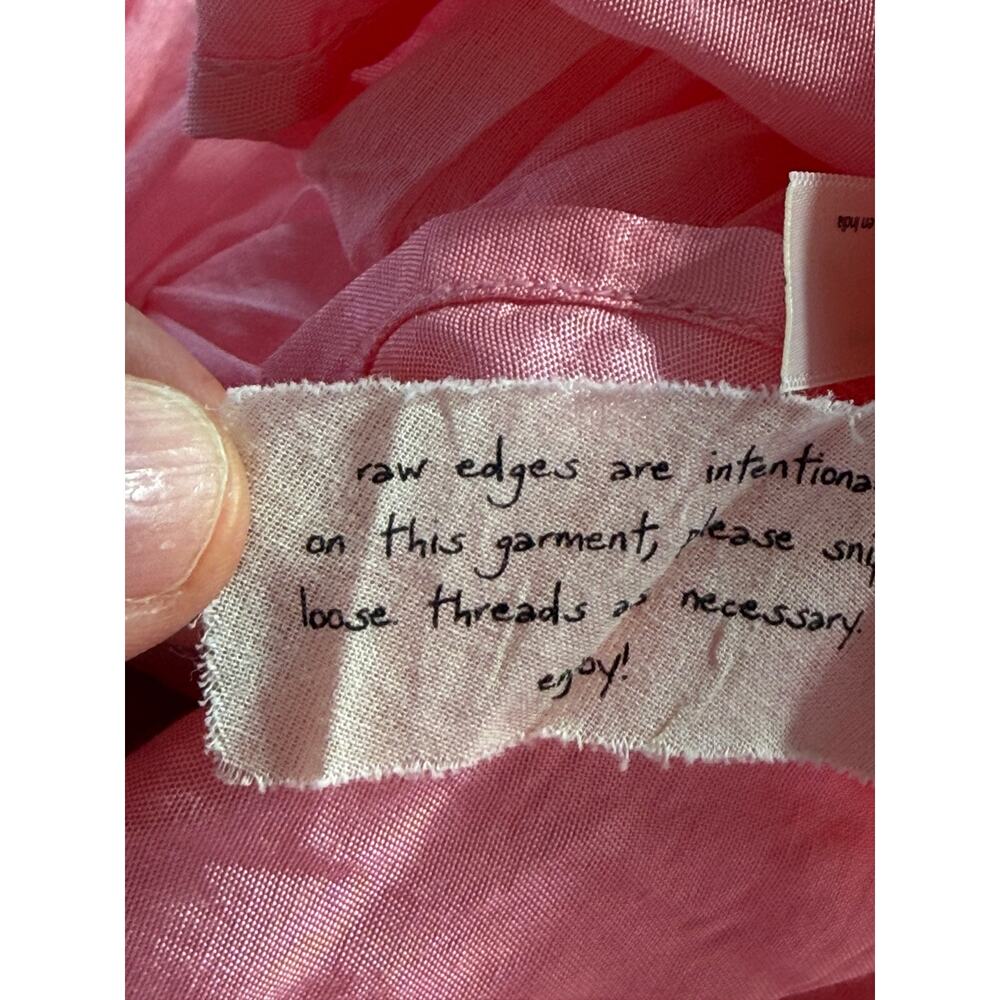 raw edges are intentiona
on this garment, please sni
loose threads as necessary.
enjoy!
en India